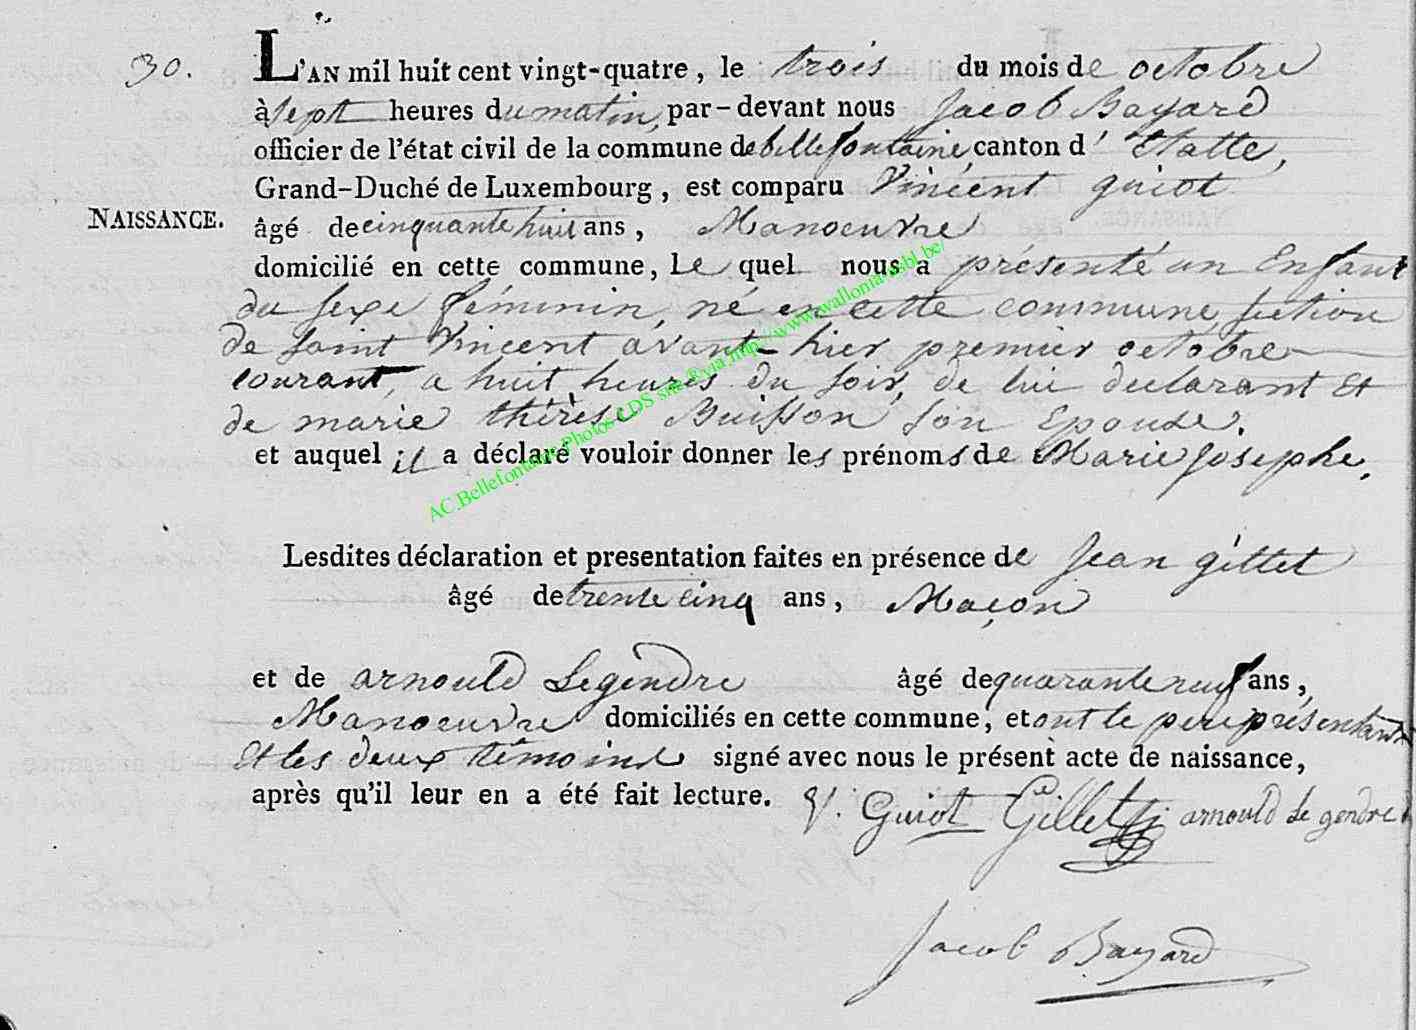 30.
L'AN mil huit cent vingt-quatre, le trois du mois de octobre
à sept heures du matin, par-devant nous Jacob Bayard
officier de l'état civil de la commune de bellefontaine, canton d' Etalle,
Grand-Duché de Luxembourg, est comparu Vincent guiot
NAISSANCE.
âgé de cinquante huit ans, Manoeuvre
domicilié en cette commune, Le quel nous a présenté un Enfant
du sexe féminin, né en cette commune, section
de saint Vincent avant-hier premier octobre
courant, a huit heures du soir, de lui declarant Et
de marie thérèse Buisson son Epouse.
et auquel il a déclaré vouloir donner les prénoms de Marie Josephe.
AC.Bellefontaine.Photos LDS site & via http://www.wallonia-asbl.be/
Lesdites déclaration et presentation faites en présence de Jean gillet
âgé de trente cinq ans, Maçon
et de arnould Legendre âgé de quarante neuf ans,
Manoeuvre domiciliés en cette commune, et ont le pere présentant
Et les deux témoins signé avec nous le présent acte de naissance,
après qu'il leur en a été fait lecture.
V. Guiot Gillet arnould Le gendre
Jacob Bayard